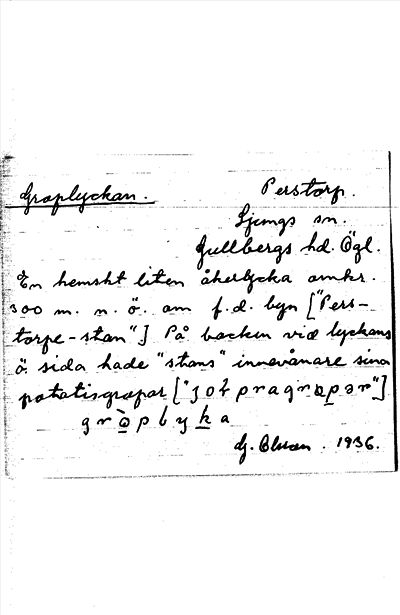 Groplyckan.
Perstorp.
Ljungs sn.
Gullbergs hd. Ögl.
En hemskt liten åkerlycka omkr.
300 m. n. ö. om f. d. byn ["Pers-
torpe-stan".] På backen vid lyckans
ö. sida hade "stans" innevånare sina
potatisgropar ["jotpragropər"]
gròplyka
G. Olson. 1936.